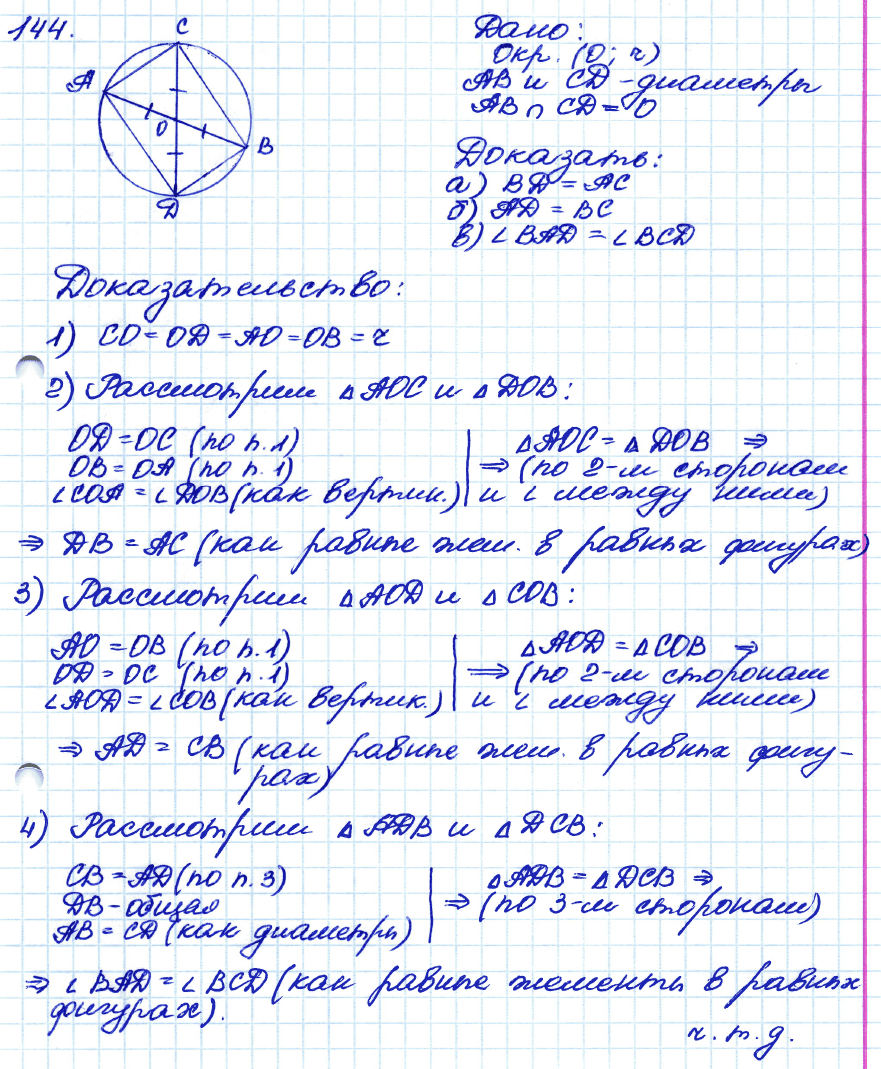 144.
C
A
O
B
D
Дано:
Окр. (O; r)
AB и CD - диаметры
AB ∩ CD = O
Доказать:
а) BD = AC
б) AD = BC
в) ∠BAD = ∠BCD
Доказательство:
1) CO = OD = AO = OB = r
2) Рассмотрим △AOC и △DOB:
OD = OC (по п.1)
OB = OA (по п.1)
∠COA = ∠DOB (как вертик.)
△AOC = △DOB ⇒
⇒ (по 2-м сторонам
и ∠ между ними)
⇒ DB = AC (как равные элем. в равных фигурах)
3) Рассмотрим △AOD и △COB:
AO = OB (по п.1)
OD = OC (по п.1)
∠AOD = ∠COB (как вертик.)
△AOD = △COB ⇒
⇒ (по 2-м сторонам
и ∠ между ними)
⇒ AD = CB (как равные элем. в равных фигу-
рах)
4) Рассмотрим △ADB и △DCB:
CB = AD (по п.3)
DB - общая
AB = CD (как диаметры)
△ADB = △DCB ⇒
⇒ (по 3-м сторонам)
⇒ ∠BAD = ∠BCD (как равные элементы в равных
фигурах).
ч.т.д.